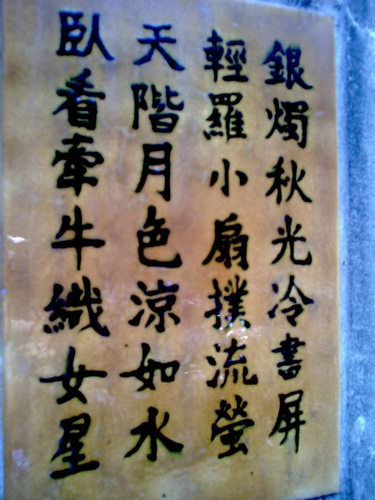 銀燭秋光冷書屏
輕羅小扇撲流螢
天階月色涼如水
臥看牽牛織女星